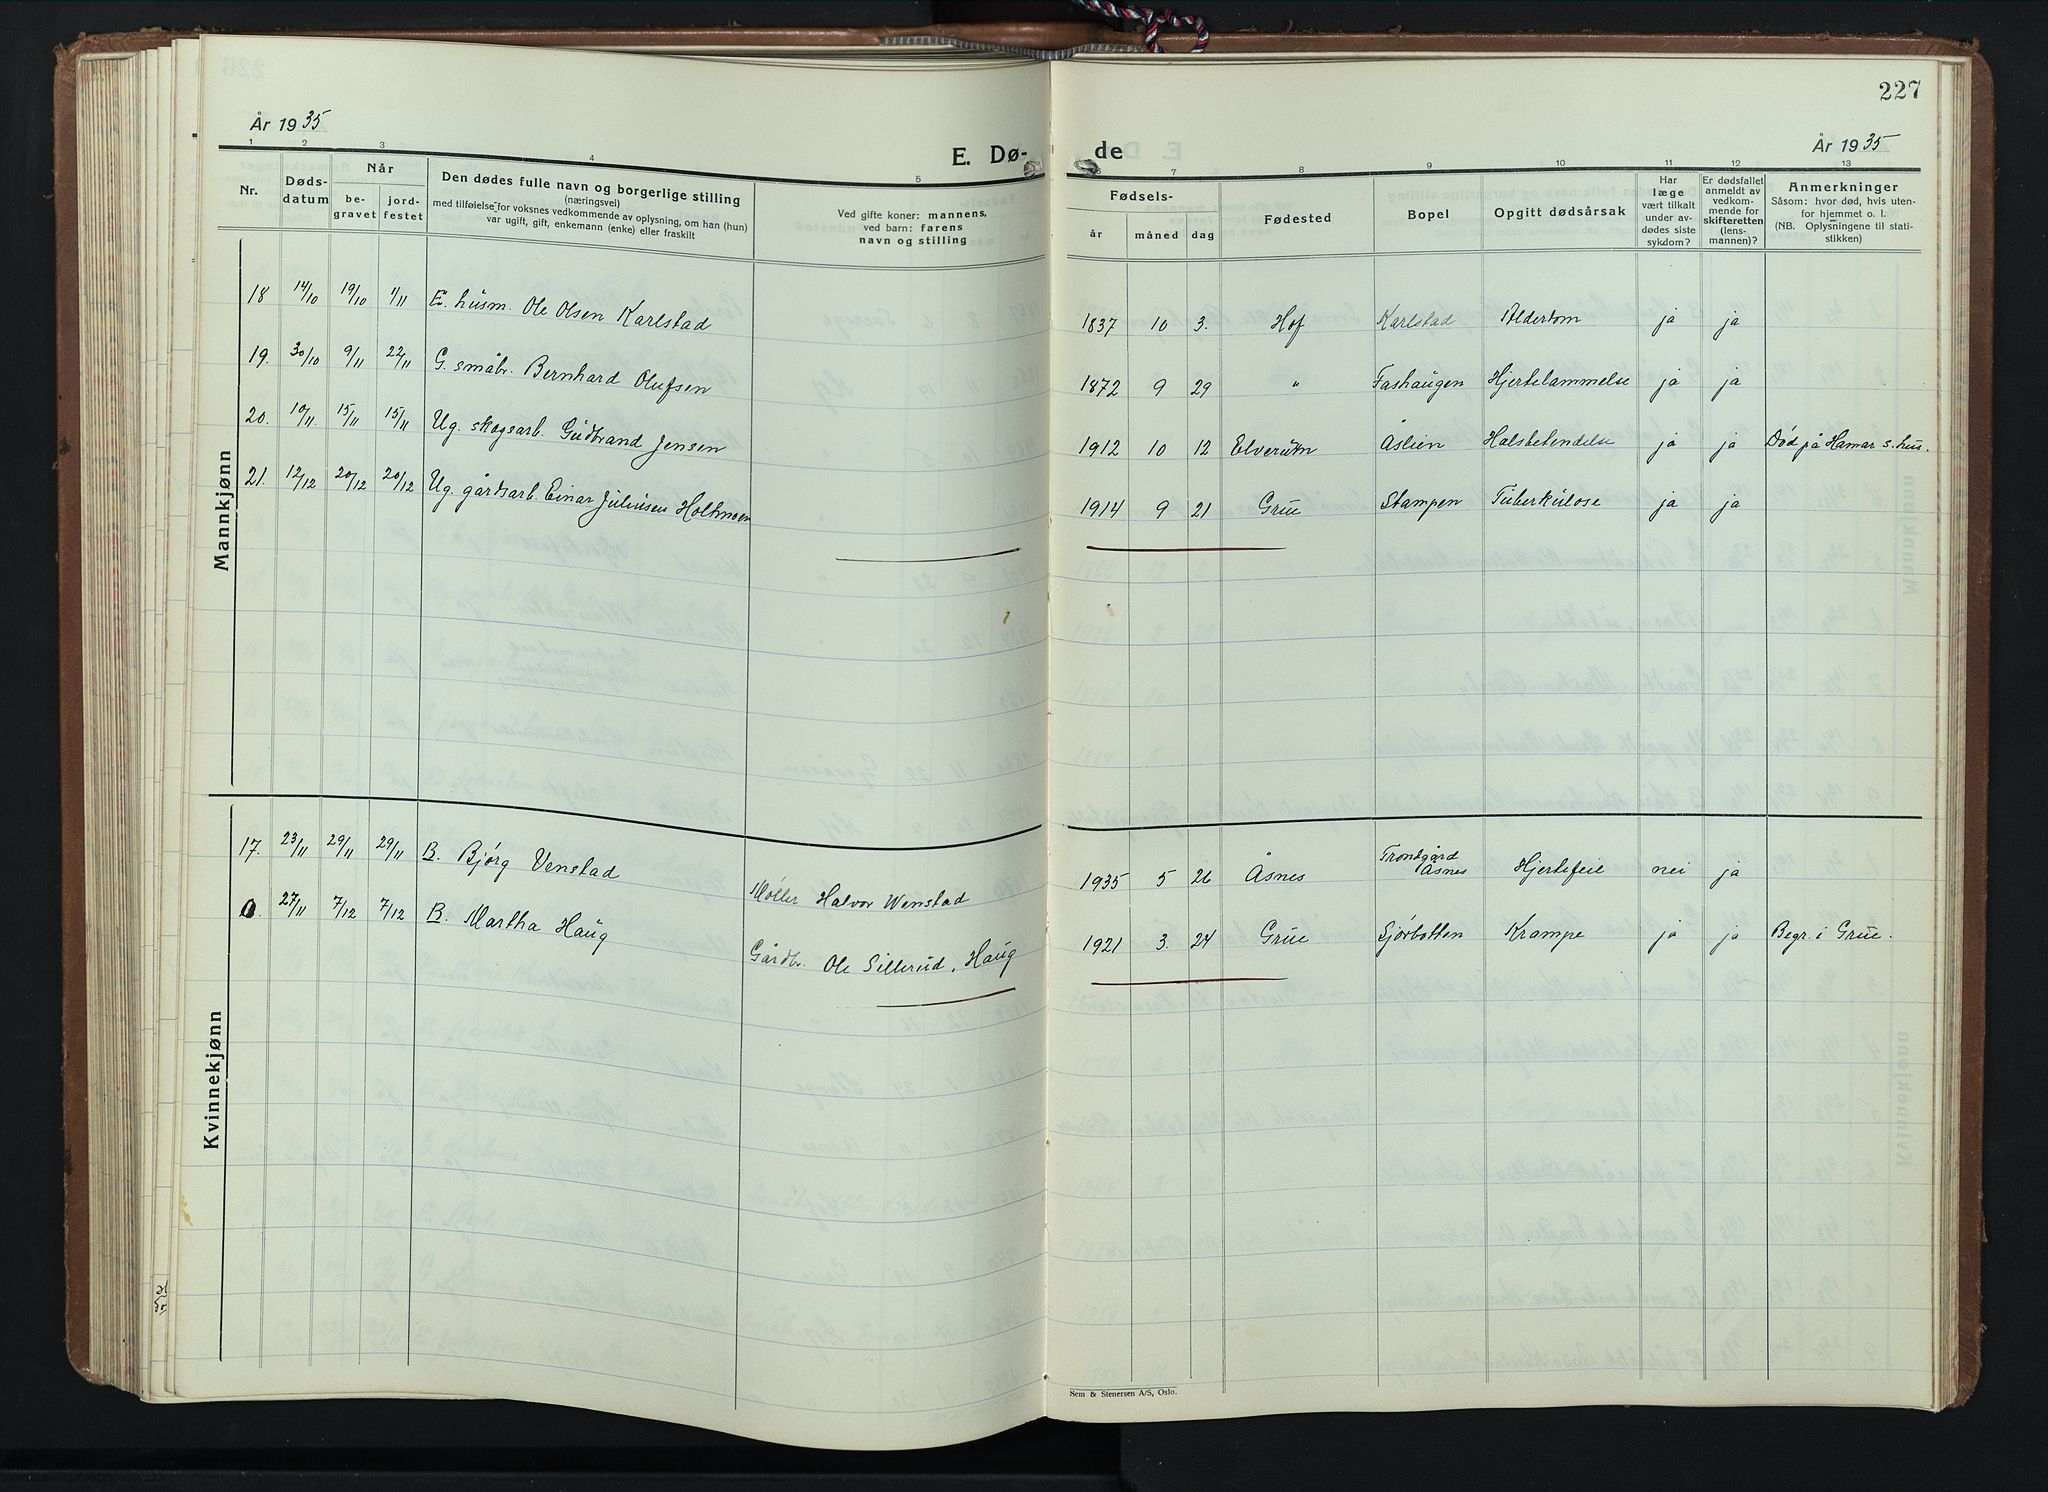 227
År 1935
År 1935
E. Dø- de
1 2 3 4 5 6 7 8 9 10 11 12 13
Nr.
Døds-
datum
Når
be-
gravet
jord-
festet
Den dødes fulle navn og borgerlige stilling
(næringsvei)
med tilføielse for voksnes vedkommende av oplysning, om han (hun)
var ugift, gift, enkemann (enke) eller fraskilt
Ved gifte koner: mannens,
ved barn: farens
navn og stilling
Fødsels-
år måned dag
Fødested
Bopel
Opgitt dødsårsak
Har
læge
vært tilkalt
under av-
dødes siste
sykdom?
Er dødsfallet
anmeldt av
vedkom-
mende for
skifteretten
(lens-
mannen)?
Anmerkninger
Såsom: hvor død, hvis uten-
for hjemmet o. l.
(NB. Oplysningene til stati-
stikken)
Mannkjønn
18 14/10 19/10 1/11 E. husm. Ole Olsen Karlstad 1837 10 3. Hof Karlstad Alderdom ja ja
19. 30/10 9/11 22/11 G. småbr. Bernhard Olufsen 1872 9 29 " Fashaugen Hjertelammelse ja ja
20. 10/11. 15/11 15/11 Ug. skogsarb. Gudbrand Jensen 1912 10 12 Elverum Åslien Halsbetendelse ja ja Død på Hamar s.hus.
21. 12/12 20/12 20/12 Ug. gårdsarb. Einar Juliusen Holtmoen 1914 9 21 Grue Stampen Tuberkulose ja ja
Kvinnekjønn
17. 23/11 29/11 29/11 B. Bjørg Venstad Møller Halvor Wenstad 1935 5 26 Åsnes Trondgård Åsnes Hjertefeil nei ja
0. 27/11 7/12 7/12 B. Martha Haug Gårdbr. Ole Sillerud, Haug 1921 3. 24 Grue Sjørbotten Krampe ja ja Begr. i Grue.
Sem & Stenersen A/S, Oslo.